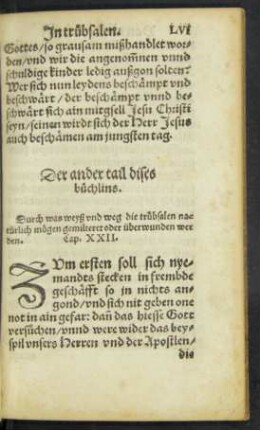 In trübsalen. LVI
Gottes/so grausam mißhandlet wor-
den/vnd wir die angenom̃en vnnd
schuldige kinder ledig außgon solten?
Wer sich nun leydens beschämpt vnd
beschwärt / der beschämpt vnnd be-
schwärt sich ain mitgsell Jesu Christi
seyn/seinen wirdt sich der Herr Jesus
auch beschämen am jungsten tag.
Der ander tail dises
büchlins.
Durch was weyß vnd weg die trübsalen na-
türlich mögen gemilteret oder überwunden wer
den. Cap. XXII.
ZVm ersten soll sich nye-
mandts stecken in frembde
geschäfft so jn nichts an-
gond/vnd sich nit geben one
not in ain gefar: dañ das hiesse Gott
versüchen/vnnd were wider das bey-
spil vnsers Herren vnd der Apostlen/
die